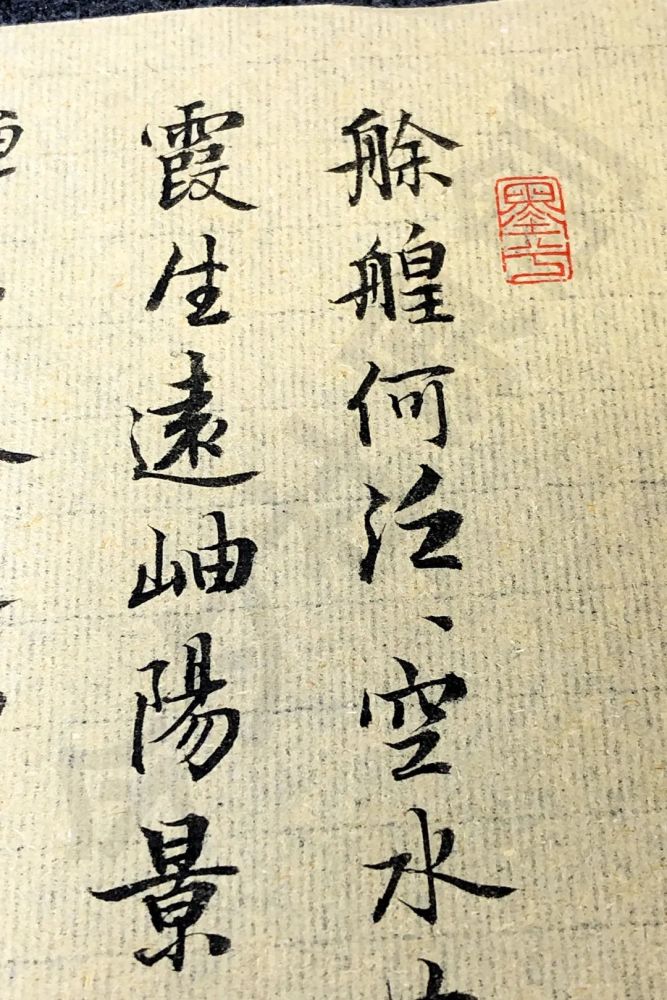 艅艎何泛、空水
霞生遠岫陽景